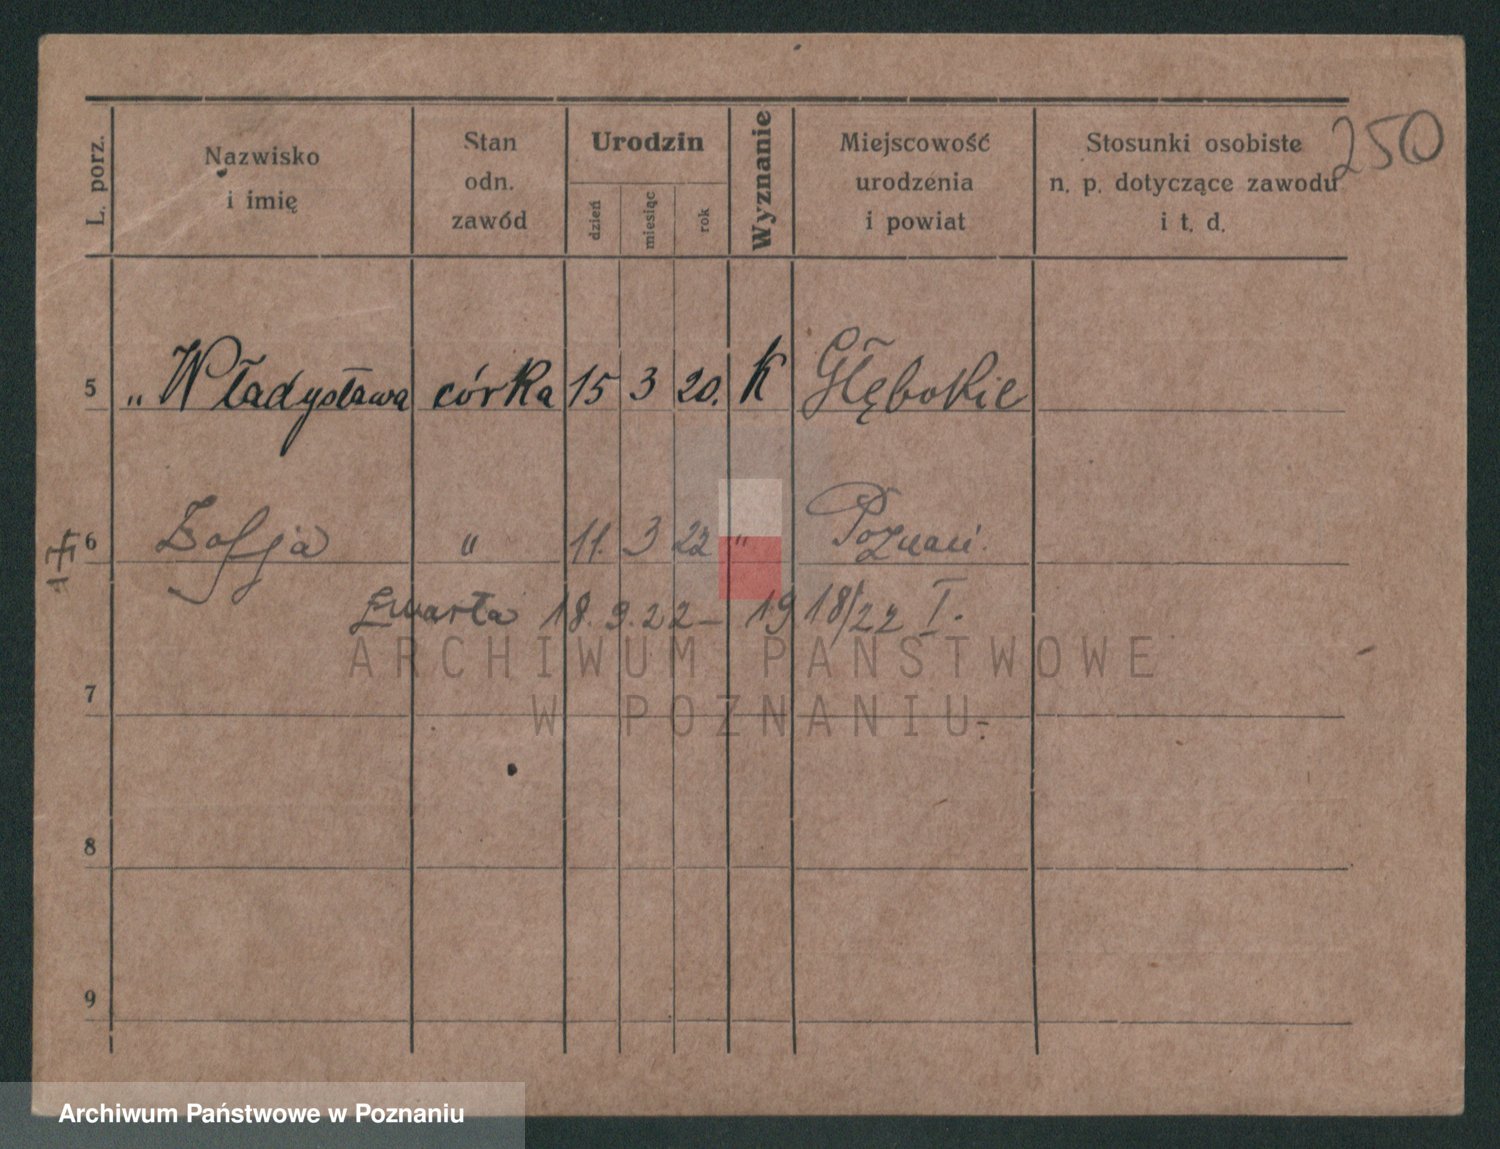 250
L. porz.
Nazwisko i imię
Stan odn. zawód
Urodzin
dzień
miesiąc
rok
Wyznanie
Miejscowość urodzenia i powiat
Stosunki osobiste n. p. dotyczące zawodu i t. d.
5 „ Władysława córka 15 3 20. K Głębokie
6 Zofja " 11. 3 22 " Poznań.
zmarła 18.9.22 – 1918/22 I.
7
8
9
ARCHIWUM PAŃSTWOWE
W POZNANIU
Archiwum Państwowe w Poznaniu